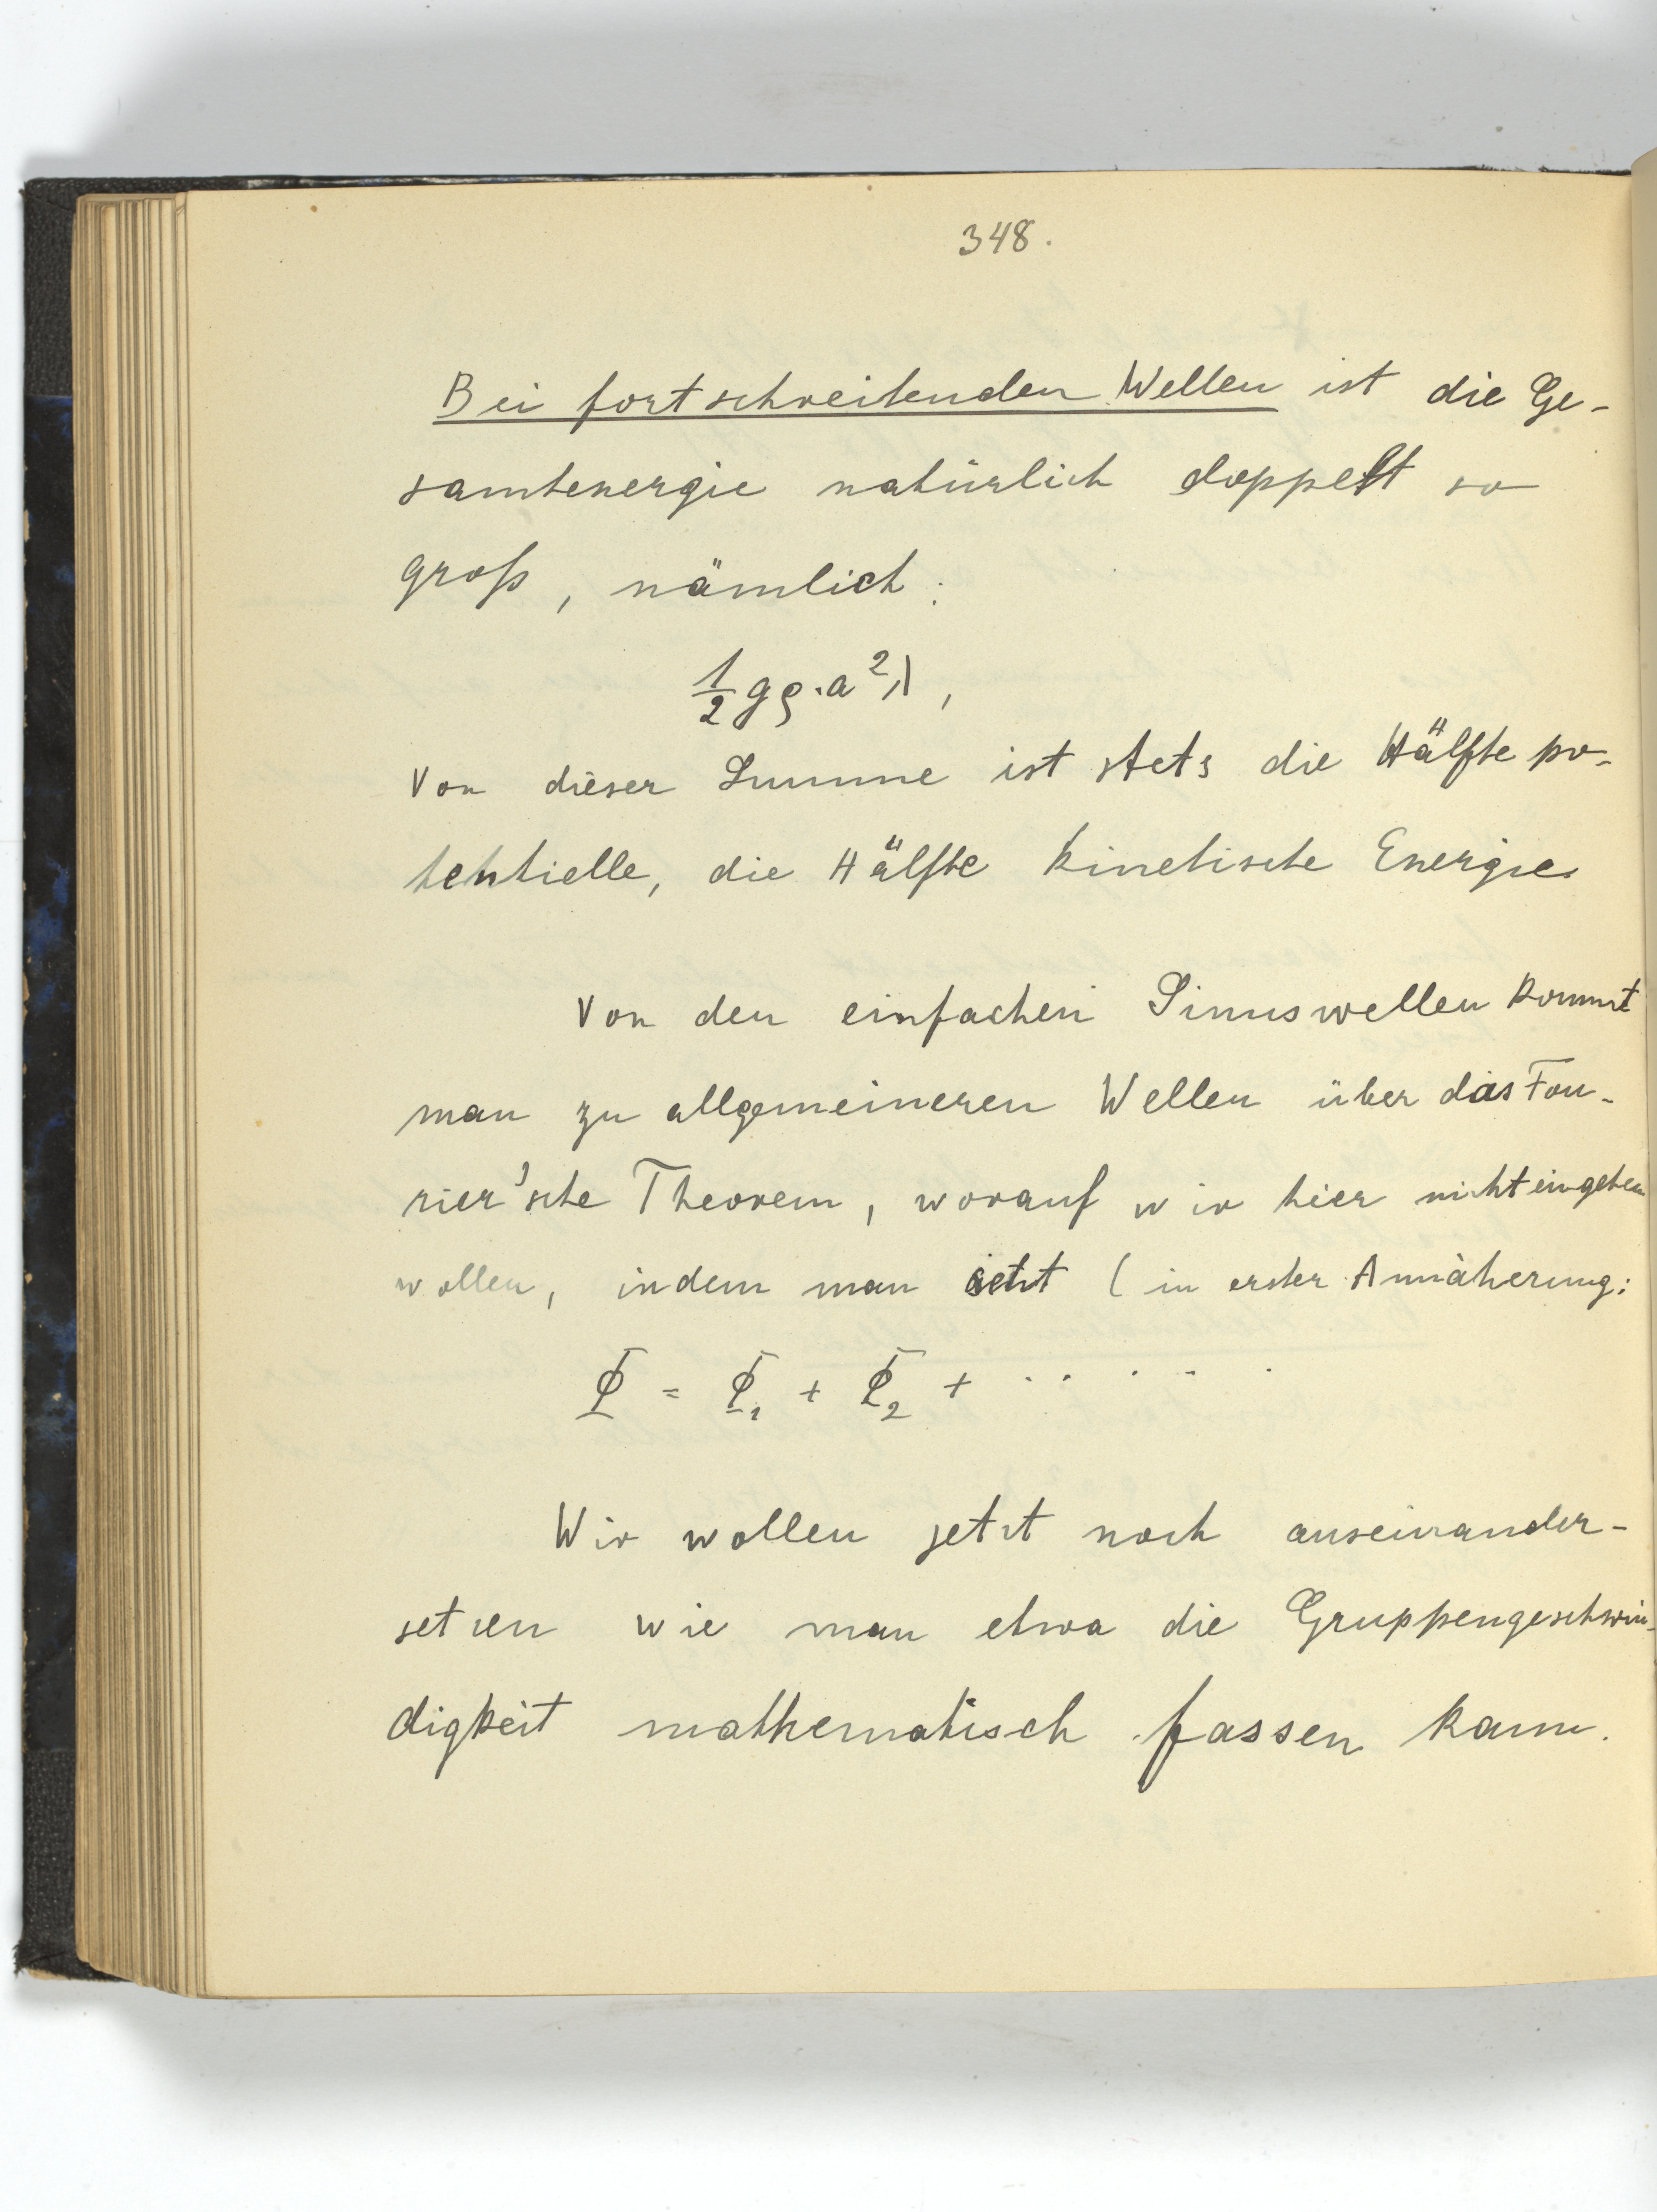 348.
Bei fortschreitenden Wellen ist die Ge-
samtenergie natürlich doppelt so
groß, nämlich:
1/2 gρ·a²λ,
Von dieser Summe ist stets die Hälfte po-
tentielle, die Hälfte kinetische Energie.
Von den einfachen Sinuswellen kommt
man zu allgemeineren Wellen über das Fou-
rier'sche Theorem, worauf wir hier nicht eingehen
wollen, indem man setzt (in erster Annäherung:
Φ = Φ₁ + Φ₂ + ......
Wir wollen jetzt noch auseinander-
setzen wie man etwa die Gruppengeschwin-
digkeit mathematisch fassen kann.